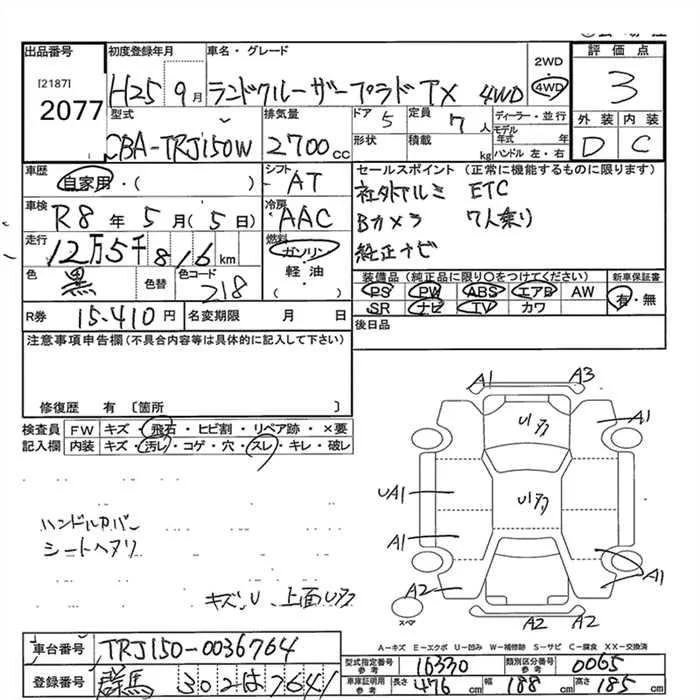 出品番号 初度登録年月 車名・グレード 2WD 評価点
[2187]
2077 H25 9月 ランドクルーザープラド TX 4WD 4WD 3
型式 排気量 ドア 5 定員 7人 ディーラー・並行 外装 内装
CBA-TRJ150W 2700cc 形状 積載 kg モデル年式 年 ハンドル 左・右 D C
車歴 自家用・( ) シフト AT セールスポイント (正常に機能するものに限ります)
車検 R8年5月(5日) 冷房 AAC 社外アルミ ETC
走行 12万5千816km 燃料 ガソリン・軽油・( ) Bカメラ 7人乗り
純正ナビ
色 黒 色替 色コード 218 装備品(純正品に限り○をつけてください) 新車保証書
PS PW ABS エアB AW 有・無
SR ナビ TV カワ
R券 15.410円 名変期限 月 日 後日品
注意事項申告欄(不具合内容等は具体的に記入して下さい)
修復歴 有 〔箇所 〕
検査員 FW キズ・飛石・ヒビ割・リペア跡・×要
記入欄 内装 キズ・汚レ・コゲ・穴・スレ・キレ・破レ
A1 A3
A1
Uタタ
UA1 Uタタ
A1 A1
A2 A2 A2
スペア
ハンドルカバー
シートヘタリ
キズ、U、上面Uタタ
A-キズ E-エクボ U-凹み W-補修跡 S-サビ C-腐食 XX-交換済
車台番号 TRJ150-0036764 型式指定番号 参考 16330 類別区分番号 参考 0065
登録番号 群馬 302は7641 車庫証明用 参考 長さ 476cm 幅 188cm 高さ 185cm